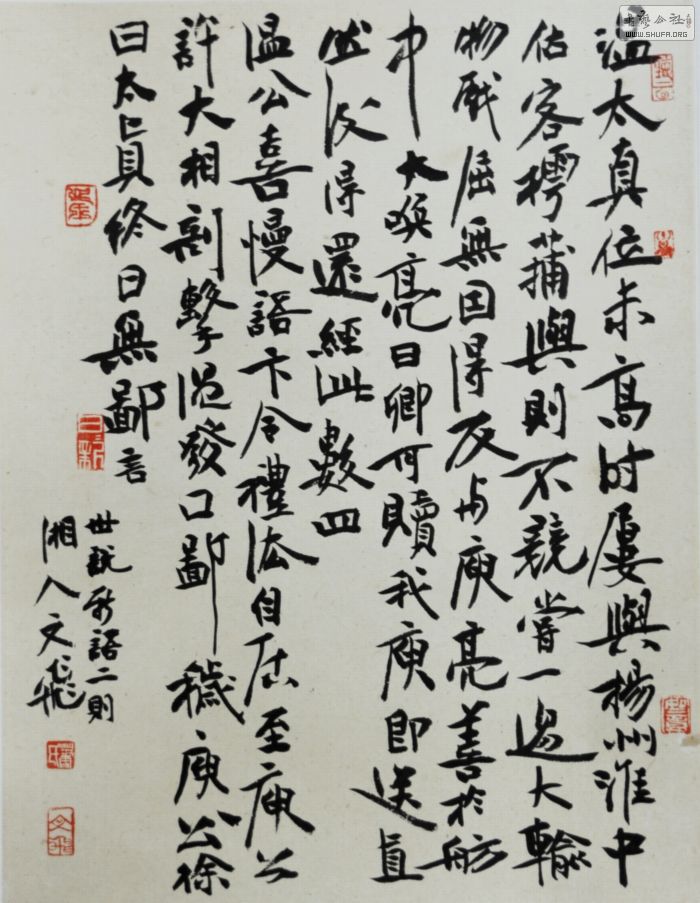 温太真位未高时屡與楊州淮中
估客樗蒱與則不競嘗一過大輸
物戲屈無因得反与庾亮善於舫
中大喚亮曰卿可贖我庾即送直
然後得還經此數四
温公喜慢語卞令禮法自居至庾公
許大相剖擊温發口鄙穢庾公徐
曰太真終日無鄙言
世説新語二則
湘人文
日新
書藝公社
WWW.SHUFA.ORG